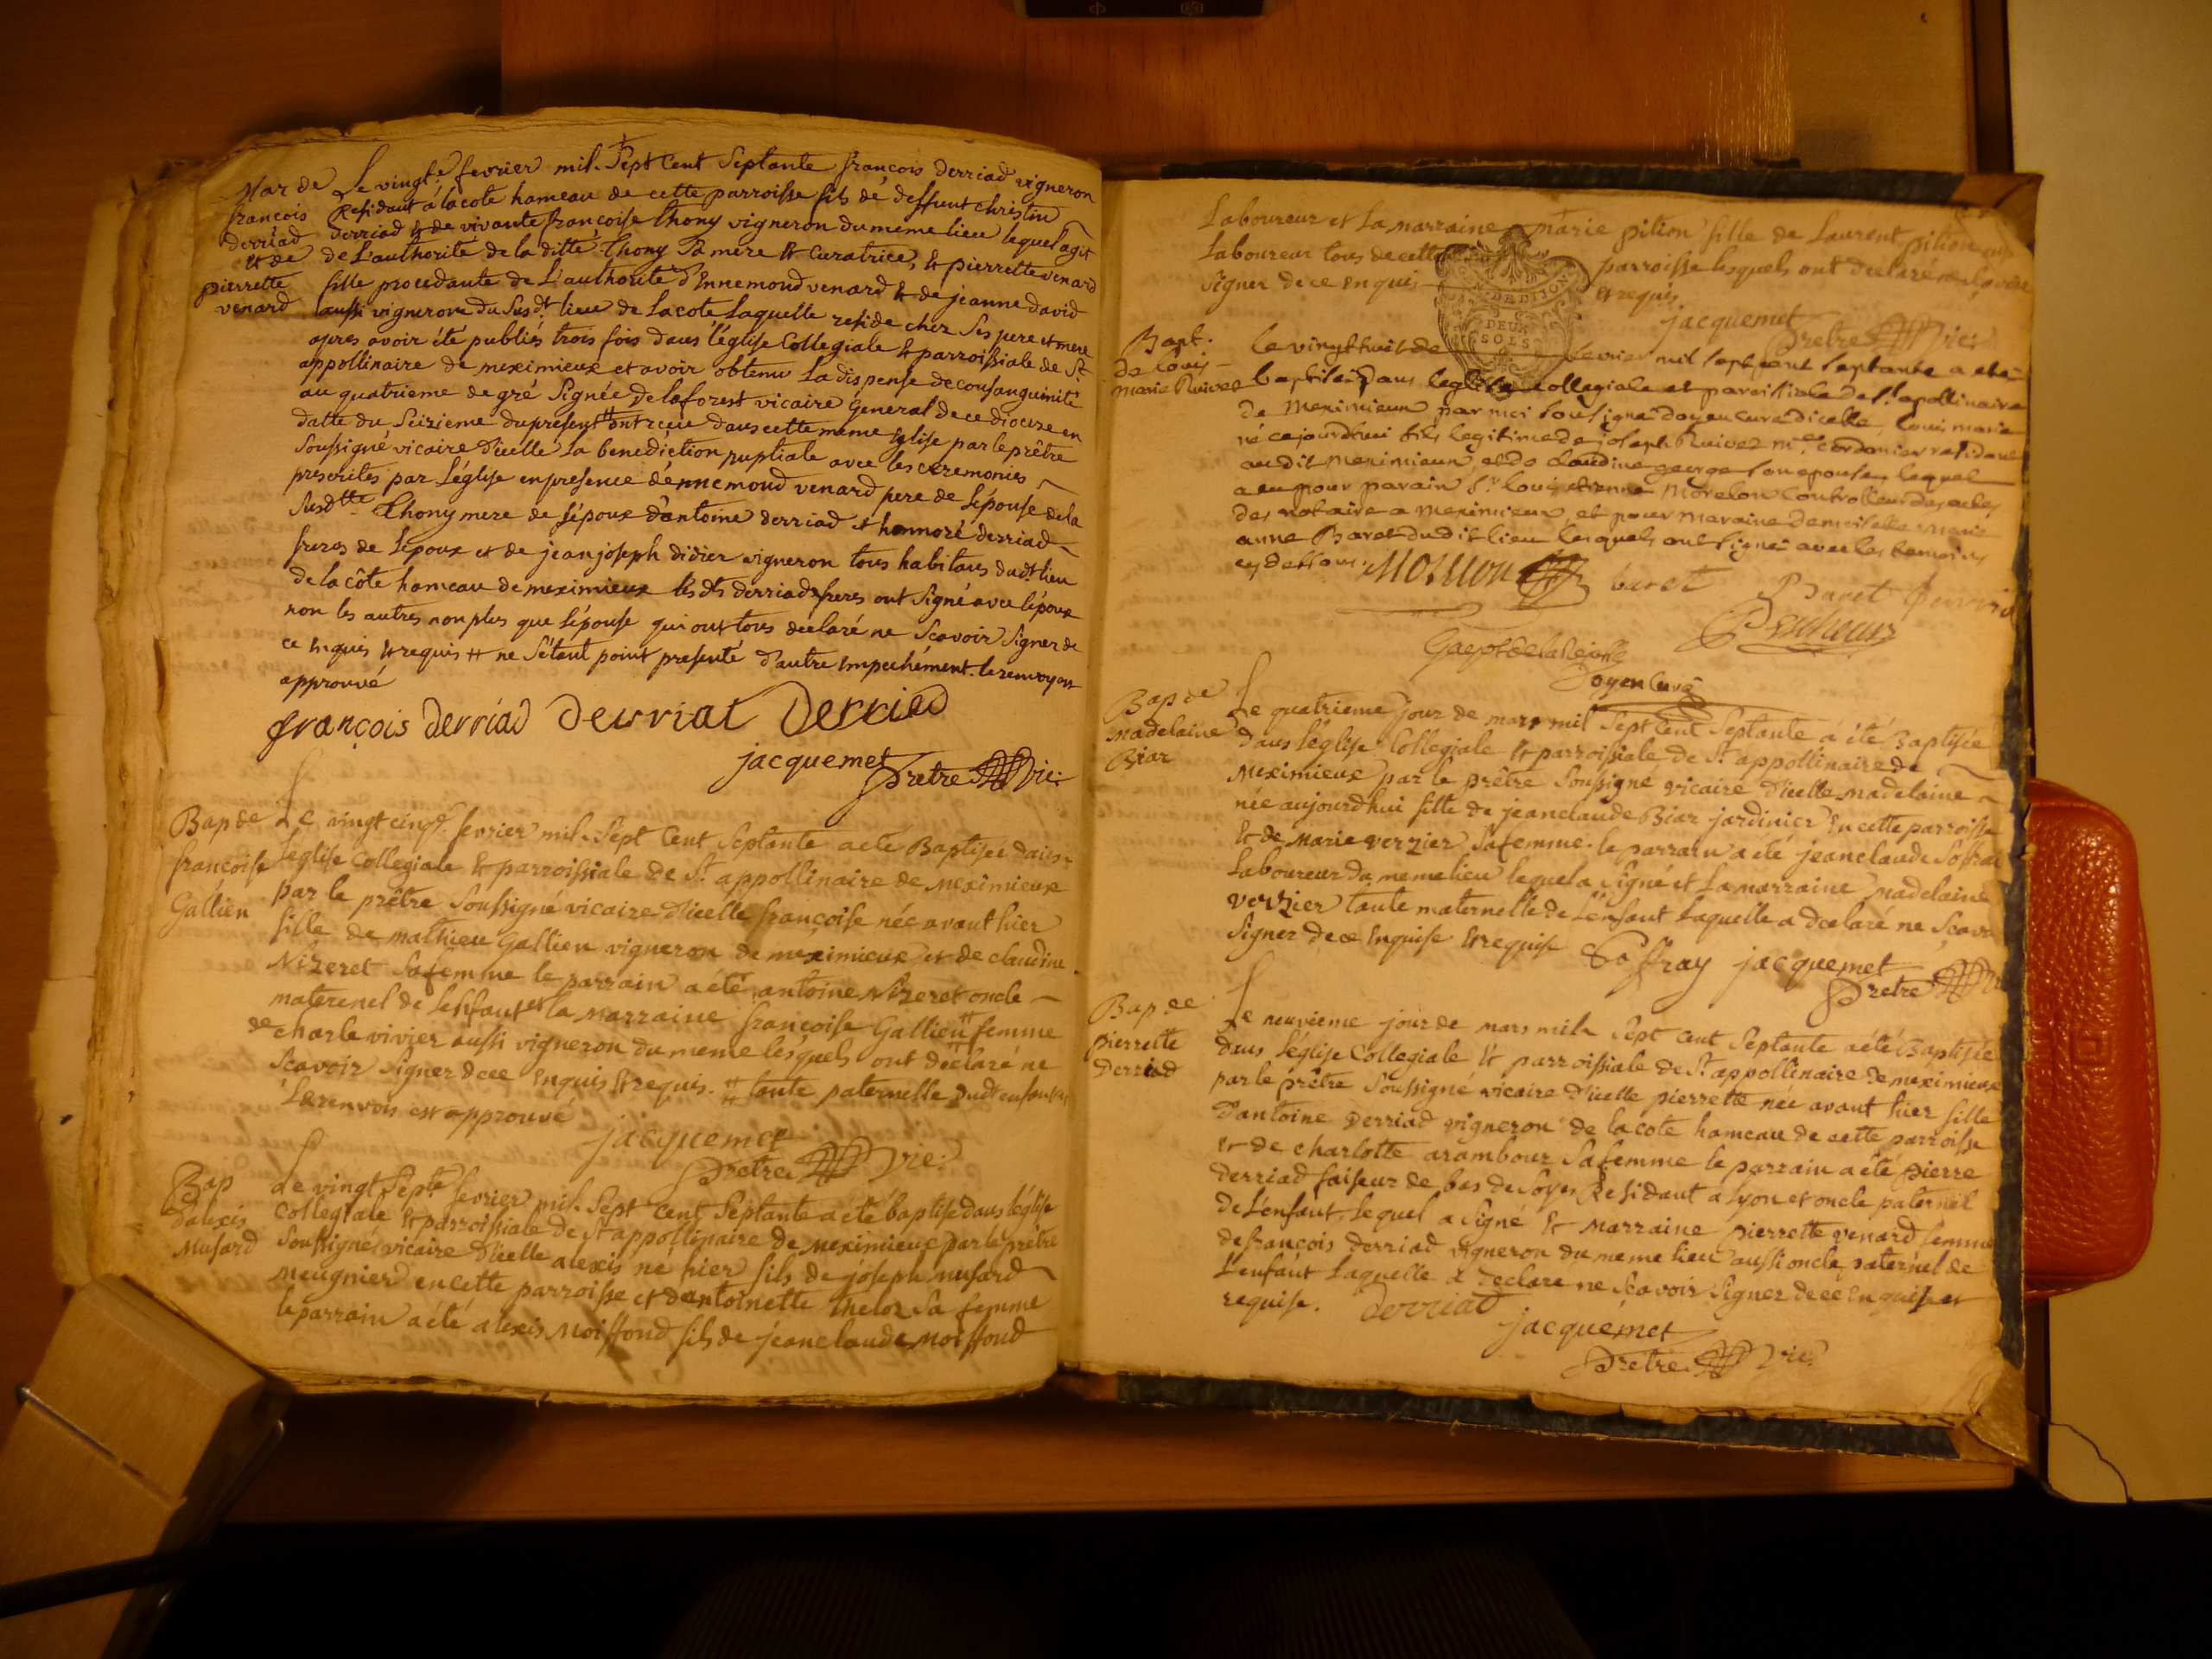 Mar de
francois
derriad
et de
pierrette
venard
Le vingt.e fevrier mil. Sept Cent Septante françois derriad vigneron
Residant à la cote hameau de cette parroisse fils de deffunt christin
derriad & de vivante francoise thony vigneron du meme lieu lequel agit
de L'authorité de la ditte thony Sa mere & Curatrice, & pierrette venard
fille procedante de L'authorité d'Ennemond venard & de jeanne david
aussi vigneron du Susd.t lieu de La cote Laquelle reside chez Ses pere et mere
apres avoir été publiés trois fois dans l'église Collegiale & parroissiale de S.t
appollinaire de meximieux et avoir obtenu La dispense de consanguinité
au quatrieme de gré Signée De laforest vicaire General de ce diocese en
datte du Seizieme du present # ont reçu dans cette meme Eglise par le prêtre
Soussigné vicaire d'icelle La benediction nuptiale avec les ceremonies
prescrites par L'église en presence d'énnemond venard pere de L'épouse de la
Susd.tte thony mere de l'époux d'antoine derriad & honnoré derriad
freres de L'epoux et de jean joseph didier vigneron tous habitans dud.t lieu
de la côte hameau de meximieux les d.ts derriads freres ont Signé avec l'époux
non les autres non plus que L'épouse qui ont tous déclaré ne Scavoir Signer de
ce Enquis & requis # ne S'étant point presenté d'autre Empechément. le renvoy est
approuvé
françois derriad derriat derried
jacquemet
Pretre vic:
Bap de
francoise
Gallien
Le vingt cinq.e fevrier mil. Sept Cent Septante a eté Baptisée dans
l'église Collegiale & parroissiale de S.t appollinaire de meximieux
par le prêtre Soussigné vicaire d'icelle francoise née avant hier
fille de mathieu Gallien vigneron de meximieux et de claudine
Nizeret Sa femme le parrain a été antoine Nizeret oncle
maternel de L'enfant et la marraine francoise Gallien # femme
de charle vivier aussi vigneron du meme lesquels ont déclaré ne
Scavoir Signer de ce Enquis & requis. # tante paternelle dud.t enfant
Le renvois est approuvé
jacquemet
Pretre vic:
Bap
d'alexis
Musard
Le vingt Sept.e fevrier mil. Sept Cent Septante a été baptisé dans l'église
Collegiale & parroissiale de S.t appollinaire de meximieux par le prêtre
Soussigné vicaire d'icelle alexis né hier fils de joseph musard
meugnier en cette parroisse et d'antoinette theloz Sa femme
le parrain a été alexis Moiffond fils de jean claude Moiffond
Laboureur et La marraine marie pilion fille de Laurent pilion
Laboureur tous de cette parroisse lesquels ont declaré ne Scavoir
signer de ce Enquis & requis
jacquemet
Pretre vic:
DE DIJON
DEUX
SOLS
Bapt.
de louis
marie Ruivet
Le vingt huit de fevrier mil sept cent septante a eté
baptisé dans leglise collegiale et paroissiale de S.t apollinaire
de Meximieux par moi soussigné doyen curé d'icelle, louis marie
né ce jourdhui fils legitime de joseph Ruivet m.e cordonier residant
au dit Meximieux, et de claudine george son epouse, lequel
a eu pour parain S.r louis etienne Morelon Controlleur des actes
des notaire a Meximieux, et pour maraine demoiselle marie
anne Baret dudit lieu lesquels ont signé avec les temoins
cy dessous.
baret Baret
doyen curé
Bap de
madelaine
Biar
Le quatrieme jour de mars mil Sept Cent Septante à été Baptisée
dans l'église Collegiale & parroissiale de S.t appollinaire de
Meximieux par le prêtre Soussigné vicaire d'icelle madelaine
née aujourdhui fille de jean claude Biar jardinier En cette parroisse
& de Marie verzier Sa femme. le parrain a été jean claude Soffrai
Laboureur du meme lieu lequel a Signé et La marraine Madelaine
verzier tante maternelle de L'enfant Laquelle a declaré ne Scavo
Signer de ce Enquise & requise Soffray jacquemet
Pretre
Bap de
pierrette
derriad
Le neuvieme jour de mars mil Sept Cent Septante a été Baptisée
dans l'église Collegiale & parroissiale de S.t appollinaire de meximieux
par le prêtre Soussigné vicaire d'icelle pierrette née avant hier fille
d'antoine derriad vigneron de la cote hameau de cette parroisse
& de charlotte arambour Sa femme le parrain a été pierre
derriad faiseur de bas de Soyes Residant à Lyon et oncle paternel
de L'enfant, lequel a Signé & marraine pierrette venard femme
de françois derriad vigneron du meme lieu aussi oncle paternel de
L'enfant Laquelle a declaré ne Scavoir Signer de ce Enquise et
requise. derriad
jacquemet
Pretre vic: